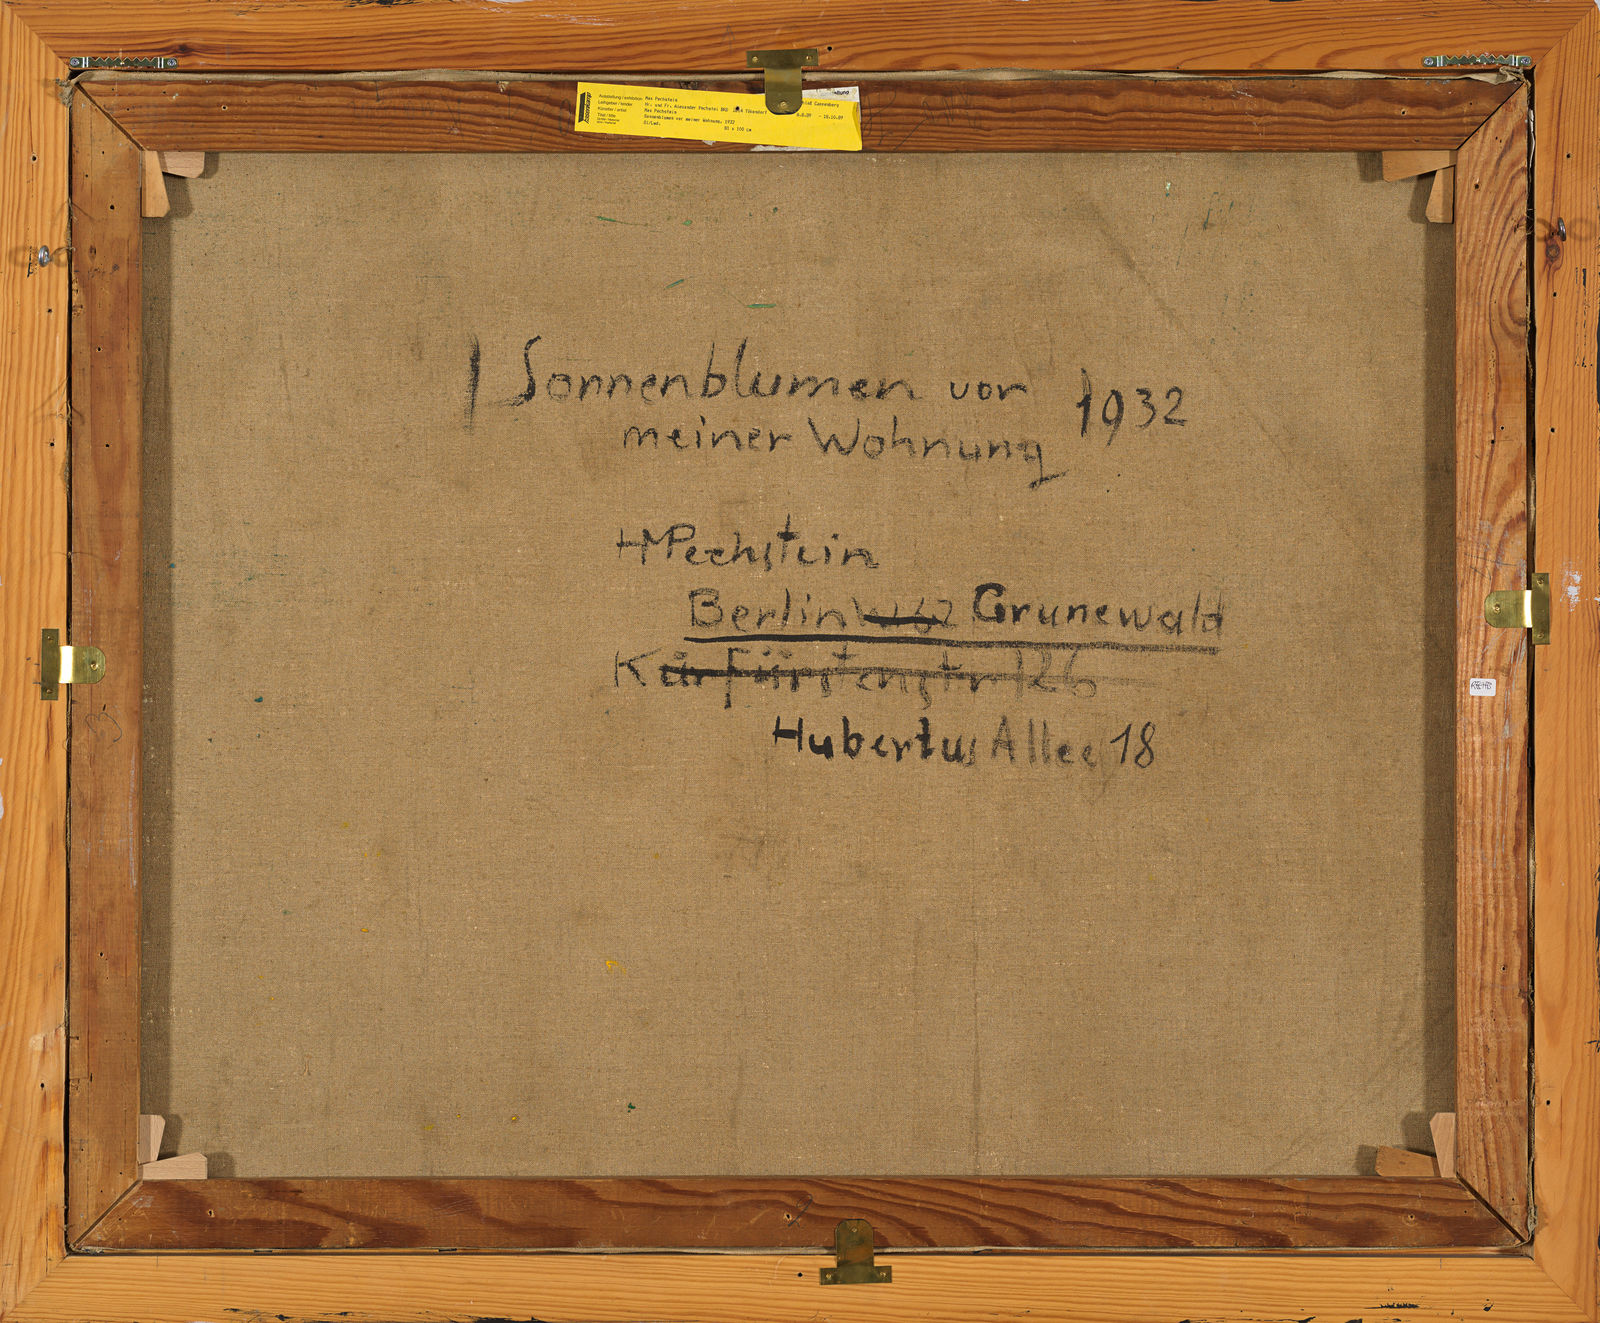 Ausstellung/exhibition Max Pechstein
Leihgeber/lender Hr. und Fr. Alexander Pechstei BRD
Künstler/artist Max Pechstein
Titel/title Sonnenblumen vor meiner Wohnung, 1932
Öl/Lwd. 80 x 100 cm
Tökendorf
- 18.10.89
I Sonnenblumen vor 1932
meiner Wohnung
HMPechstein
Berlin W 62 Grunewald
Kurfürstenstr 126
Hubertus Allee 18